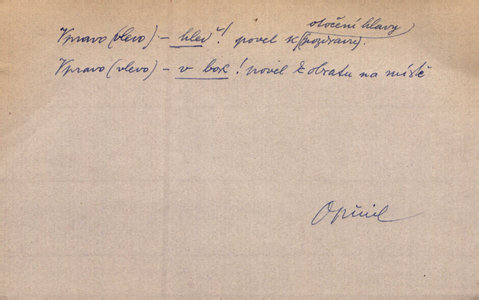 otočení hlavy
Vpravo (vlevo) – hleď! povel k (pozdravu).
Vpravo (vlevo) – v bok! povel k obratu na místě